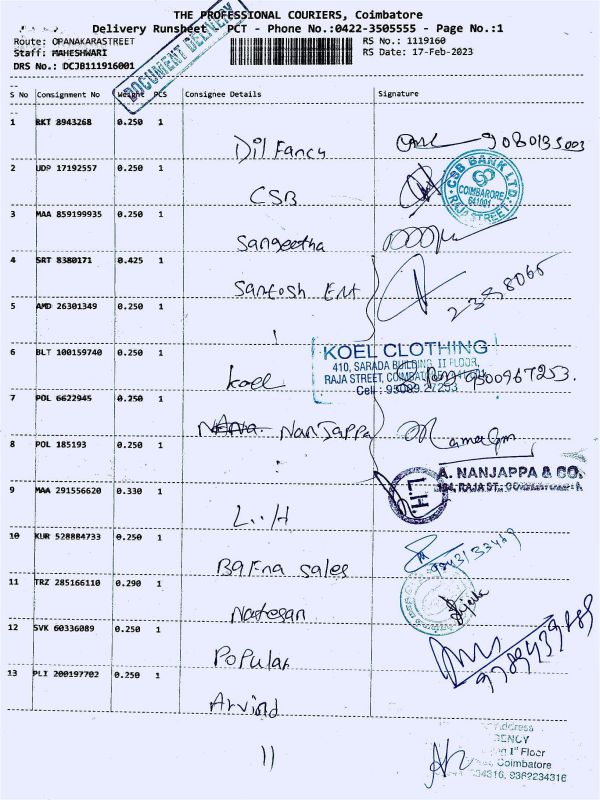 THE PROFESSIONAL COURIERS, Coimbatore
Delivery Runsheet PCT - Phone No.:0422-3505555 - Page No.:1
Route: OPANAKARASTREET
RS No.: 1119160
Staff: MAHESHWARI
RS Date: 17-Feb-2023
DRS No.: DCJB111916001
DOCUMENT DELIVERY
S No Consignment No Weight PCS Consignee Details Signature
1 BKT 8943268 0.250 1
Dil Fancy
9080135003
2 UDP 17192557 0.250 1
CSB
CSB BANK LTD.
COIMBATORE
641001
RAJA STREET
3 MAA 859199935 0.250 1
Sangeetha
4 SRT 8380171 0.425 1
Santosh Ent
2398065
5 AMD 26301349 0.250 1
6 BLT 100159740 0.250 1
Koel
KOEL CLOTHING
410, SARADA BUILDING, II FLOOR,
RAJA STREET, COIMBATORE
Cell : 95009 27253
9500967253.
7 POL 6622945 0.250 1
Nanjappa
8 POL 185193 0.250 1
A. NANJAPPA & CO.
RAJA ST.
L.H.
9 MAA 291556620 0.330 1
L..H
10 KUR 528884733 0.250 1
Bafna sales
9843133469
11 TRZ 285166110 0.290 1
Natesan
12 SVK 60336089 0.250 1
Popular
13 PLI 200197702 0.250 1
Arvind
11
Address
1st Floor
Coimbatore
234316, 9362234316